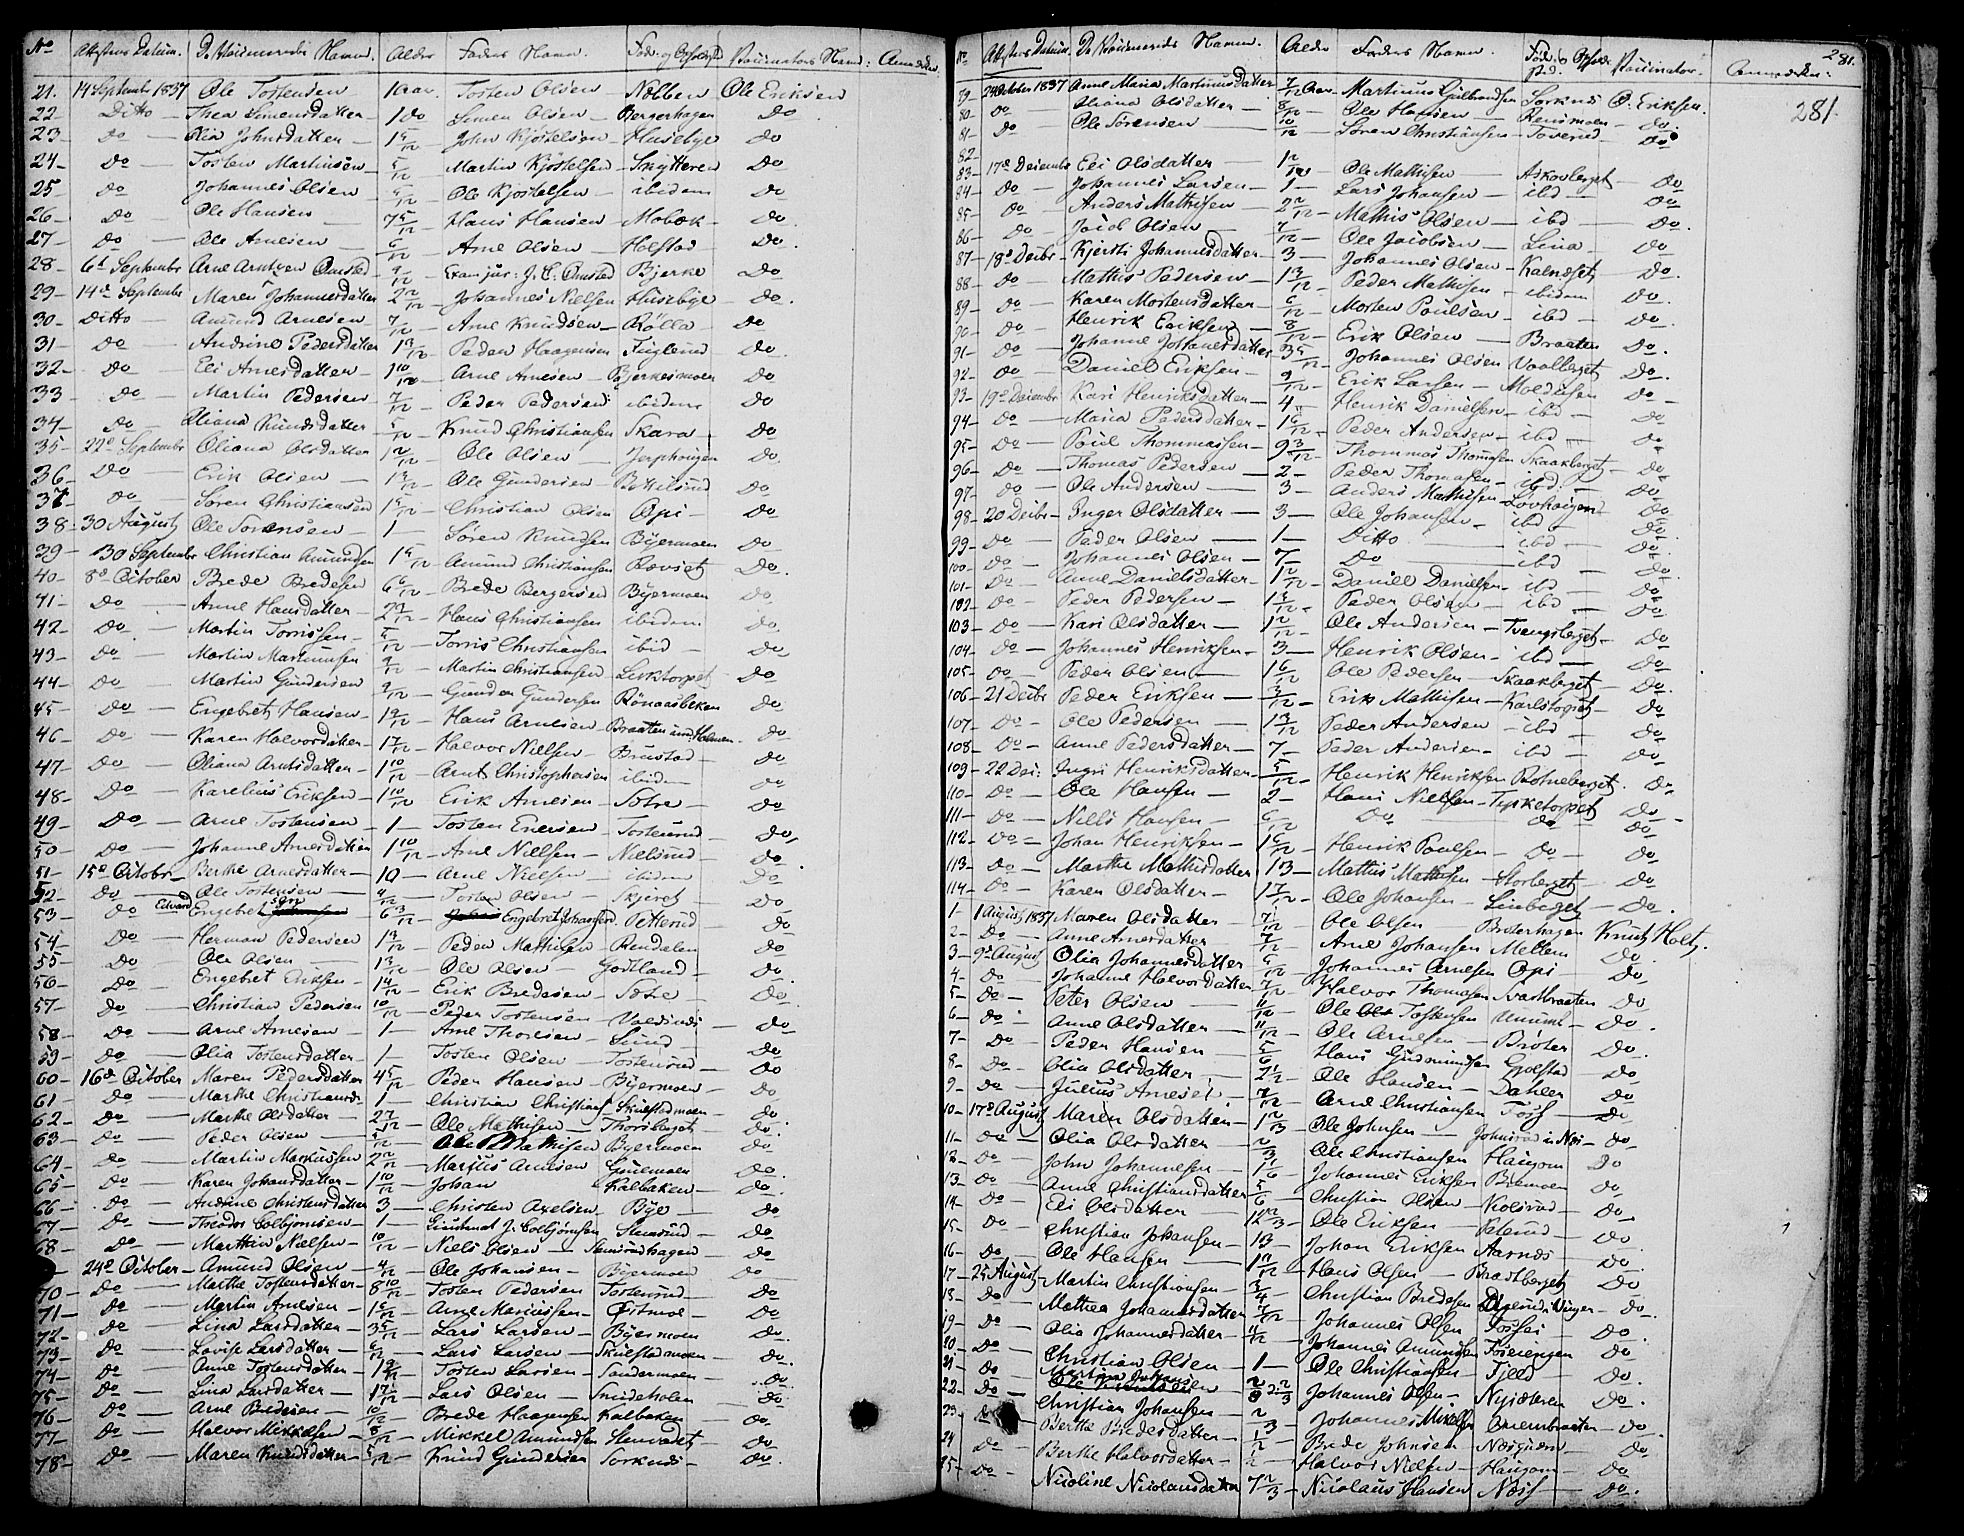 No Attestens Datum. De Vaccineredes Navne. Alder Faders Navn. Føde- og Opholdsted Vaccinators Navn: Anmærkn:
21. 14 September 1837 Ole Tostensen 1 aar. Tosten Olsen Nebben Ole Eriksen
22 – Ditto – Thea Simensdatter – 1 Do Simen Olsen – Bergerhagen Do
23 – Do – Olia Johnsdatter – 1 5/12 – John Kjöstelsen – Husebye Do
24 – Do – Tosten Martinsen – 5/12 – Martin Kjöstelsen – Skytteren Do
25 Do Johannes Olsen 5/12 – Ole Kjöstelsen – ibidem Do
26 – Do – Ole Hansen – 7 5/12 – Hans Hansen – Mobæk – Do
27 – Do – Ole Arnesen – 6/12 – Arne Olsen – Holstad – Do
28 – 6d September Arne Arntzen Onsted – 9/12 – Exam jur: J. C. Onsted Bjerke Do
29 – 14d September Maren Johannesdatter 2 2/12 – Johannes Nielsen Husebye Do
30 – Ditto – Amund Arnesen – 7/12 – Arne Knudsen – Rölla Do
31 – Do – Andrine Pedersdatter 1 3/12 – Peder Haagensen Fuglerud – Do
32 – Do – Eli Arnesdatter – 1 10/12 – Arne Arnesen – Bjerkesmoen Do
33 – Do – Martin Pedersen 7/12 – Peder Pedersen: ibidem Do
34 – Do – Oliana Knudsdatter 5/12 – Knud Christiansen Skara – Do
35 – 22d September Oliana Olsdatter 1 2/12 – Ole Olsen – Jerphougen Do
36 – Do – Erik Olsen – 1 3/12 – Ole Gundersen – Bottelsrud Do
37 – Do – Sören Christiansen 1 5/12 – Christian Olsen Opi – Do
38 – 30 August Ole Sorensen – 1 – Sören Knudsen Byermoen Do
39 – 30 September Christian Amundsen 1 5/12 – Amund Christiansen Rævset – Do
40 – 8d October Brede Bredesen 6 6/12 – Brede Bergersen Byermoen Do
41 – Do – Anne Hansdatter – Hans Christiansen ibidem Do
42 – Do – Martin Torrissen – 5/12 – Torris Christiansen ibid – Do
43 – Do – Martin Martinusen 9/12 – Martin Christiansen Lerktorpet – Do
44 – Do – Martin Gundersen 9/12 – Gunder Gundersen Rönaasbæken Do
45 – Do – Engebret Hansen – 1 9/12 – Hans Arnesen – Braaten und: Holmen – Do
46 – Do – Karen Halvorsdatter – 1 7/12 – Halvor Nielsen – Brustad – Do
47 – Do – Oliana Arntsdatter – 1 10/12 – Arnt Christophersen ibidem Do
48 – Do – Karelius Eriksen – 1 10/12 – Erik Arnesen – Sotre – Do
49 – Do – Arne Tostensen – 1 – Tosten Enersen – Tostenrud – Do
50 – Do – Johanne Arnesdatter 1 10/12 – Arne Nielsen – Nielsrud – Do
51 – 15d October – Berthe Arnesdatter – 10 – Arne Nielsen – ibidem Do
52 – Do – Ole Tostensen – 4/12 – Tosten Olsen – Skjeret – Do
53 Do Edvard Engebretsen 6 3/12 – Engebret Johansen Petterud – Do
54 – Do – Herman Pedersen 1 3/12 – Peder Mathisen – Rendalen Do
55 – Do – Ole Olsen – 1 3/12 – Ole Olsen – Gothland – Do
56 – Do – Engebret Eriksen – Erik Bredesen – Sotre – Do
57 – Do – Christian Pedersen 10/12 – Peder Tostensen – Do
58 – Do – Arne Arnesen – 1 – Arne Thoresen – Lund – Do
59 – Do – Olia Tostensdatter – 1 – Tosten Olsen – Tostenrud – Do
60 – 16d October Maren Pedersdatter 4 5/12 – Peder Hansen – Byermoen – Do
61 – Do – Marthe Christiansd: – 1 – Christian Christians: Skulstadmoen – Do
62 – Do – Marthe Olsdatter – 2 7/12 – Ole Mathisen – Thorsberget – Do
63 – Do – Peder Olsen – 5/12 – Ole Mathisen Byermoen Do
64 – Do – Martin Markussen 2 2/12 – Marius Arnesen – Do
65 – Do – Karen Johansdatter – 1 10/12 – Johan Kalbakken – Do
66 – Do – Andrine Christensdatter 3 – Christen Axelsen – Bye – Do
67 – Do – Theodor Colbjörnsen – 1 – Lieutenant J. Colbjörnsen Slemsrud – Do
68 – Do – Marthin Nielsen – 10/12 – Niels Olsen – Slemsrudhagen – Do
24d October – Amund Olsen – 4/12 – Ole Johansen – Byermoen Do
70 – Do – Marthe Tostensdatter – 8 10/12 – Tosten Pedersen Tostenrud – Do
71 – Do – Martin Arnesen – 1 6/12 – Arne Mariussen – Östmoe – Do
72 – Do – Lina Larsdatter – 3 5/12 – Lars Larsen – Byermoen Do
73 – Do – Lovise Larsdatter – 6/12 – Lars Larsen – Skulstadmoen – Do
74 – Do – Anne Tostensdatter – 1 9/12 – Tosten Larsen – Sandermoen – Do
75 – Do – Lina Larsdatter – 1 7/12 – Lars Olsen – Smedeholen Do
76 – Do – Arne Bredesen – 10/12 – Brede Haagensen Kalbakken Do
77 – Do – Halvor Mikkelsen – 8/12 – Mikkel Amundsen – Do
78 – Do – Maren Knudsdatter – 5/12 – Knud Gundersen Sorknes – Do
No Attestens Datum De Vaccineredes Navne. Alder Faders Navn. Føde- & Opholdssted. Vaccinator. Anmærkn: 281.
281.
79 – 24 October 1837 Anne Maria Martinusdatter 7/12 Aar – Martinus Gulbrandsen Sorknes O. Eriksen.
80 – Do Oliana Olsdatter 8/12 – Ole Hansen – Rensmoen – Do
81 – Do – Ole Sörensen 10/12 – Sören Christiansen – Toverud – Do
82 –
83 – 17d Decembr Eli Olsdatter – 1 2/12 – Ole Mathisen – Askovberget – Do
84 – Do – Johannes Larsen – 1 – Lars Johansen – ibd – Do
85 – Do – Anders Mathisen – 2 2/12 – Mathis Olsen – ibd – Do
86 – Do – Jacob Olsen – 7/12 – Ole Jacobsen – Lina Do
87 – 18d Decbr – Kjersti Johannesdatter – 3 – Johannes Olsen – Kalneset – Do
88 – Do – Mathis Pedersen – 1 3/12 – Peder Mathisen – ibidem Do
89 – Do – Karen Mortensdatter – 6/12 – Morten Poulsen – ibd – Do
90 – Do – Henrik Eriksen – 8/12 – Erik Olsen – Braaten Do
91 – Do – Johanne Johannesdatter 3 5/12 – Johannes Olsen Vaalberget Do
92 – Do – Daniel Eriksen – 9/12 – Erik Larsen – Moldusen Do
93 – 19d Decembr Kari Henriksdatter – 4 – Henrik Danielsen – ibd – Do
94 – Do – Maria Pedersdatter – 1 6/12 – Peder Andersen – ibd – Do
95 – Do – Poul Thommassen – 9 3/12 – Thommas Thomasen Skaakberget – Do
96 – Do – Thomas Pedersen – 2 – Peder Thomasen – ibd – Do
97 – Do – Ole Andersen – 3 – Anders Mathisen – Lövhougen – Do
98 – 20 Decbr – Inger Olsdatter – 3 – Ole Johansen – ibd – Do
99 – Do – Peder Olsen – 1 – Ditto – ibd – Do
100 – Do – Johannes Olsen – 7 – Do – ibd – Do
101 – Do – Anne Danielsdatter – 1 2/12 – Daniel Danielsen – ibd – Do
102 – Do – Peder Pedersen – Peder Olsen – ibd – Do
103 – Do – Kari Olsdatter – 1 2/12 – Ole Andersen – Tvengsberget – Do
104 – Do – Johannes Henriksen – 3 – Henrik Olsen – ibd – Do
105 – Do – Peder Olsen – 1 6/12 – Ole Pedersen – Skaakberget – Do
106 – 21 Decbr Peder Eriksen – 3/12 – Erik Mathisen – Karlstorpet – Do
107 – Do – Ole Pedersen – 1 3/12 – Peder Andersen – ibd – Do
108 – Do – Anne Pedersdatter – 7 – Peder Andersen – ibd – Do
109 – 22 Dec: Ingri Henriksdatter – 5/12 – Henrik Henriksen Rotneberget. Do
110 – Do – Ole Hansen – 2 – Hans Nielsen – Typketorpet Do
111 – Do – Niels Hansen – 6/12 Do – Do – Do
112 – Do – Johan Henriksen – 1 6/12 – Henrik Poulsen – Do – Do
113 – Do – Marthe Mathisdatter – 13 – Mathis Mathisen – Storberget – Do
114 – Do – Karen Olsdatter – 1 7/12 – Ole Johansen – Linberget – Do
1 – 1 August 1837 Maren Olsdatter 7/12 – Ole Olsen Broterhagen Knut Holtz.
2 – Do – Anne Arnesdatter 7/12 – Arne Johansen Mellem Do
3 – 9d August Olia Johannesdatter 5/12 – Johannes Arnesen Opi – Do
4 – Do Johanne Halvorsdatter 7/12 – Halvor Thomasen Svartbraaten Do
5 – Do – Peter Olsen – 11/12 – Ole Tostensen – Do
6 – Do – Anne Olsdatter – 11/12 – Ole Arnesen – Broter – Do
7 – Do – Peder Hansen – 5/6 – Hans Gudmundsen Golstad Do
8 – Do – Olia Olsdatter – 2 1/2 – Ole Hansen – Dahlen Do
9 – Do – Julius Arnesen – 7/12 – Arne Christiansen Foss – Do
10 – 17d August Maren Olsdatter – 1 2/3 – Ole Johnsen – Johnsrud i Næs – Do
11 – Do – Olia Olsdatter – 2/3 – Ole Christiansen Haugom Do
12 – Do – John Johannesen – 1 1/6 – Johannes Eriksen Bremoen Do
13 – Do – Anne Christiansdatter 5/6 – Christian Olsen – Kolsrud – Do
14 – Do – Eli Olsdatter – 12 2/3 – Ole Eriksen – Do
15 – Do – Christian Johansen – 13 – Johan Eriksen Aarnæs – Do
16 – Do – Ole Hansen – Hans Olsen – Bradtberget Do
17 – 25 August Martin Christiansen – 3/4 – Christian Bredesen i Vinger – Do
18 – Do – Mathea Johannesdatter Johannes Olsen – Fossei – Do
19 – Do – Olia Johannesdatter – 11/12 – Johannes Amundsen Foseiengen Do
20 – Do – Christian Olsen – 1 – Ole Christiansen – Fjeld – Do
21 – Do Martin Johannesen 2/3 – Johannes Olsen – Nysæteren Do
22 – Do – Christian Johansen – 2/3 – Johannes Mikkelsen – Do
23 – Do Berthe Bredesdatter – 1/2 – Brede Johnsen Næsguden – Do
24 – Do – Berthe Halvorsdatter – 1/2 – Halvor Nielsen – Haugom – Do
25 – Do – Nicoline Nicolausdatter 7 2/3 – Nicolaus Hansen Næss – Do